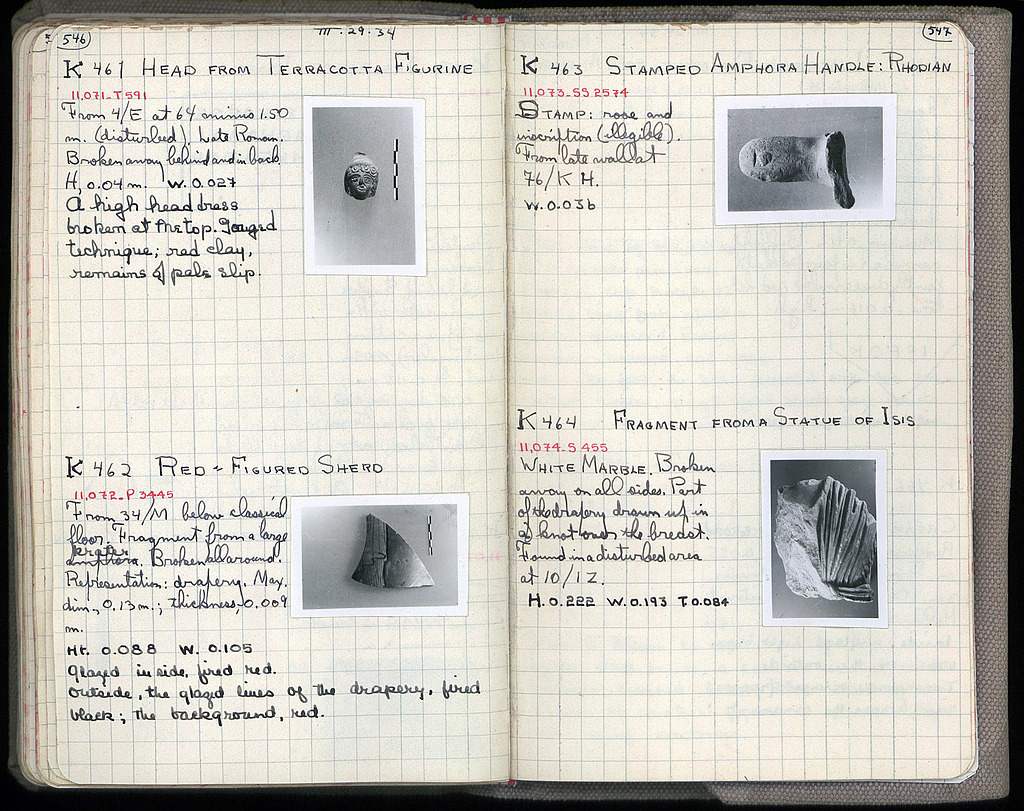 546
III.29.34
K 461 HEAD FROM TERRACOTTA FIGURINE
11,071-T591
From 4/E at 64 minus 1.50
m. (disturbed). Late Roman.
Broken away behind and in back.
H, 0.04 m. W. 0.027
A high headdress
broken at the top. Gouged
technique; red clay,
remains of pale slip.
K 462 RED-FIGURED SHERD
11,072-P3445
From 34/M below classical
floor. Fragment from a large
krater
amphora. Broken all around.
Representation: drapery. Max.
dim., 0.13 m.; thickness, 0.009
m.
Ht. 0.088 W. 0.105
Glazed inside, fired red.
Outside, the glazed lines of the drapery, fired
black; the background, red.
547
K 463 STAMPED AMPHORA HANDLE: RHODIAN
11,073-SS 2574
STAMP: rose and
inscription (illegible).
From late wall at
76/K H.
W. 0.036
K 464 FRAGMENT FROM A STATUE OF ISIS
11,074-S 455
WHITE MARBLE. Broken
away on all sides. Part
of the drapery drawn up in
a knot over the breast.
Found in a disturbed area
at 10/IZ.
H. 0.222 W. 0.193 T. 0.084